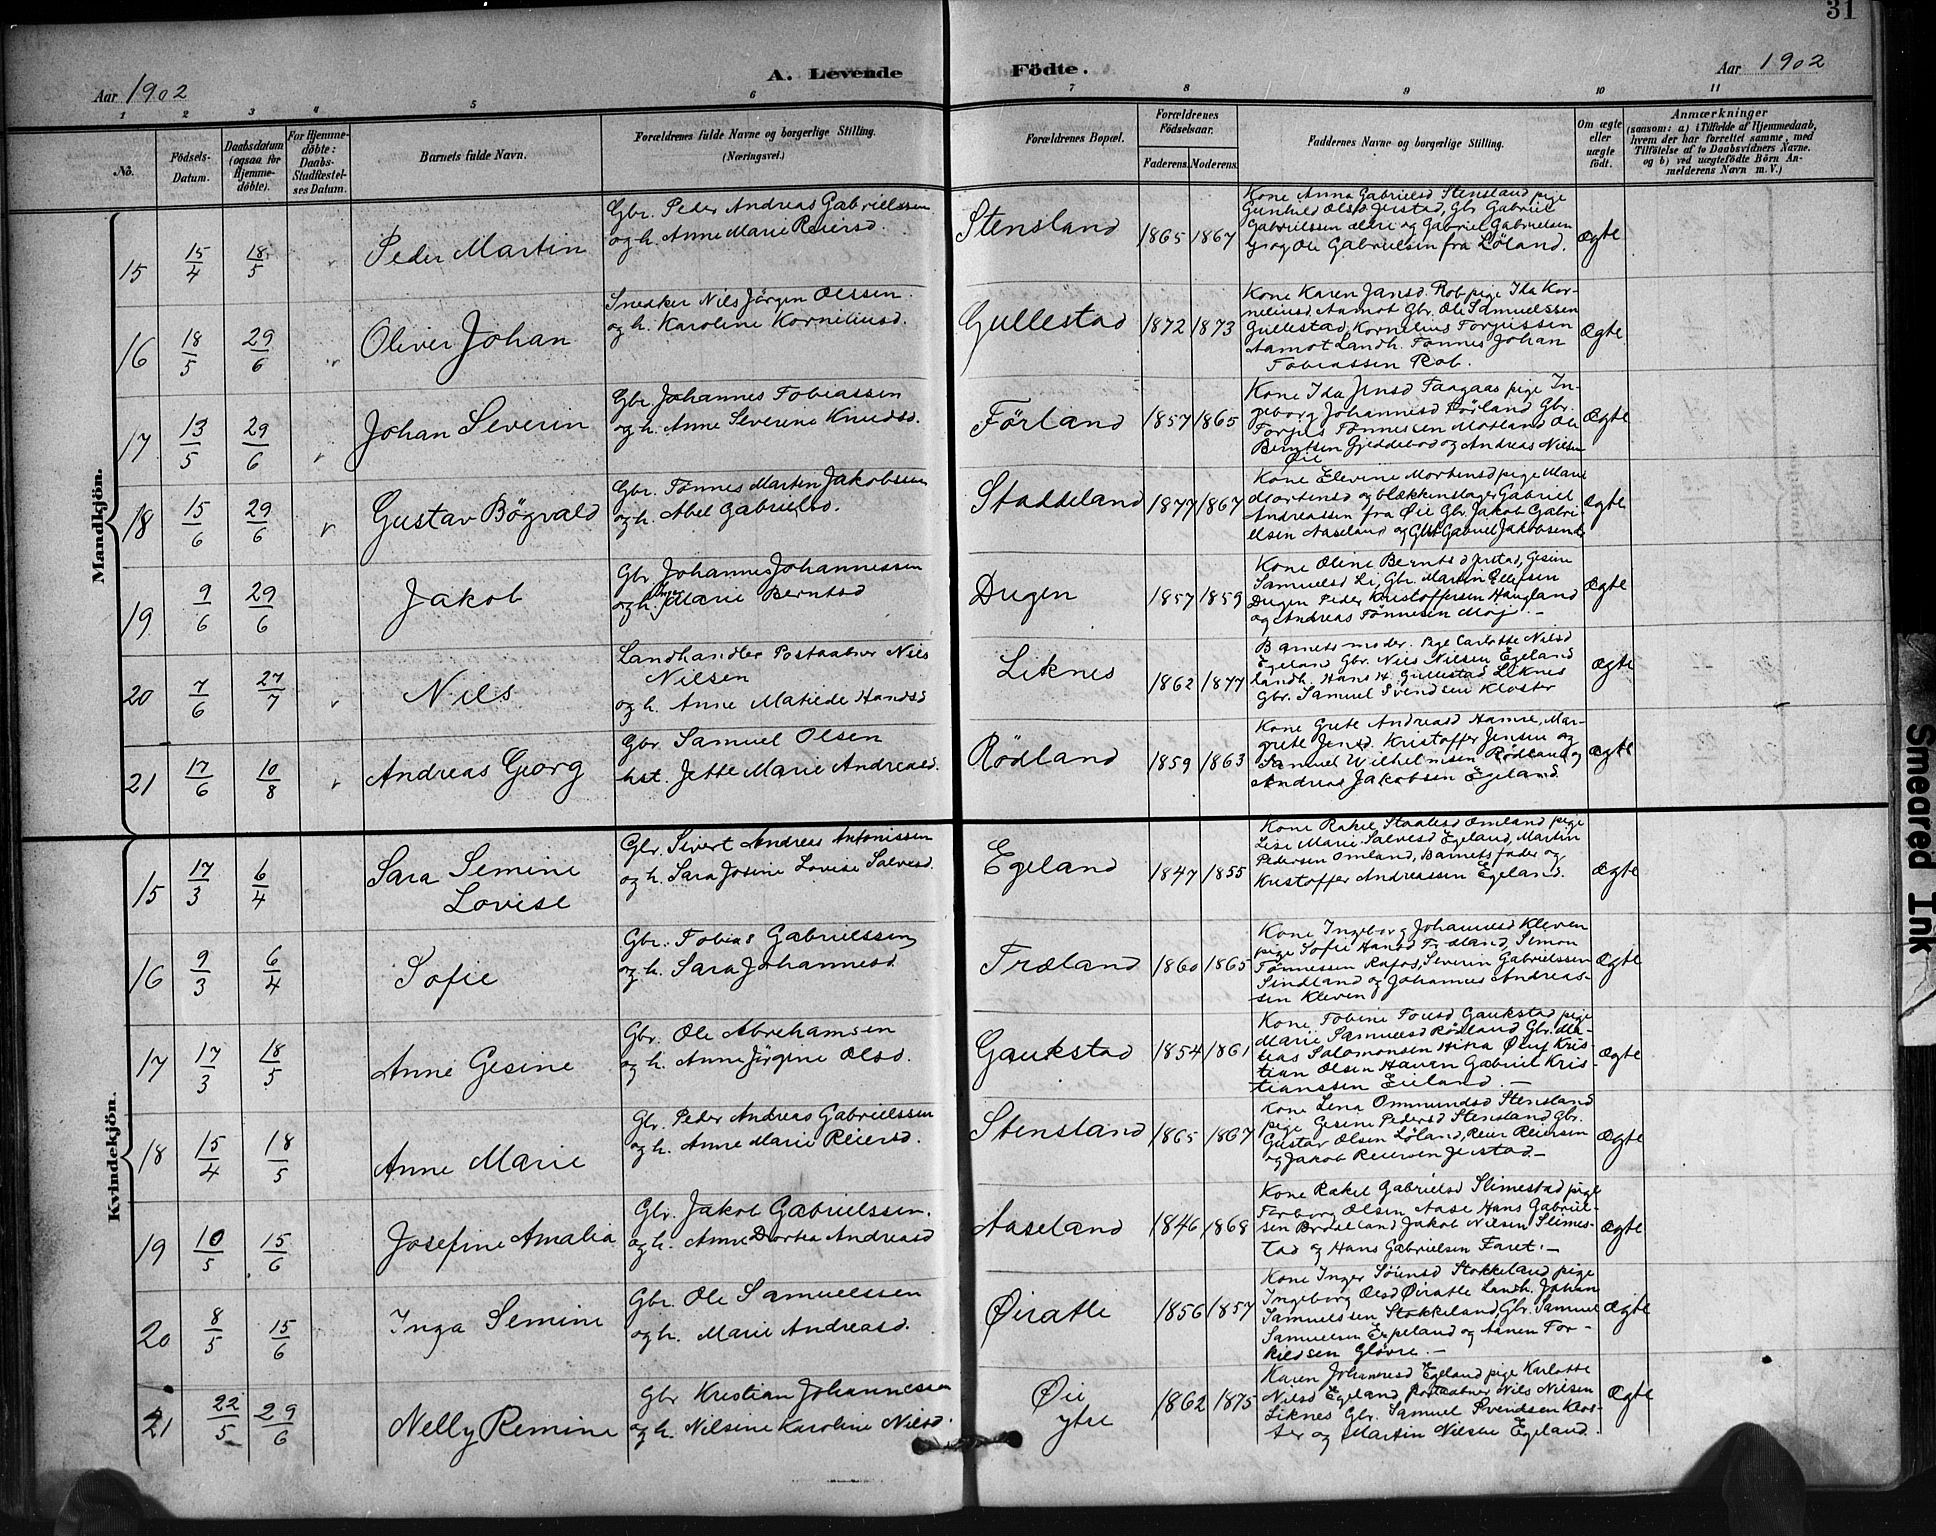 31
A. Levende Födte.
Aar 1902
Aar 1902
1 2 3 4 5 6 7 8 9 10 11
No.
Födsels-Datum.
Daabsdatum (ogsaa for Hjemme-döbte).
For Hjemme-döbte: Daabs-Stadfæstel-ses Datum.
Barnets fulde Navn.
Forældrenes fulde Navne og borgerlige Stilling. (Næringsvei.)
Forældrenes Bopæl.
Forældrenes Födselsaar.
Faderens. Moderens.
Faddernes Navne og borgerlige Stilling.
Om ægte eller uægte født.
Anmærkninger
(saasom: a) i Tilfælde af Hjemmedaab,
hvem der har forrettet samme, med
Tilföielse af to Daabsvidners Navne.
og b) ved uægtefödte Börn An-
melderens Navn m. V.)
Mandkjön.
15 15/4 18/5 Peder Martin
Gbr. Peder Andreas Gabrielssen
og h. Anne Marie Reiersd.
Stensland 1865 1867
Kone Anna Gabrielsd Stensland pige
Gunhild Olsd Jerstad, Gbr Gabriel
Gabrielssen ældre og Gabriel Gabrielsen
yr og Ole Gabrielsen fra Löland.
Ægte
16 18/5 29/6 Oliver Johan
Snedker Nils Jörgen Olssen
og h. Karoline Korneliusd.
Gullestad 1872 1873
Kone Karen Jansd. Rob pige Ida Kor-
neliusd. Aamot Gbr. Ole Samuelssen
Gullestad, Kornelius Torgiussen
Aamot Landh. Tønnes Johan
Tobiassen Rob.
Ægte
17 13/5 29/6 Johan Severin
Gbr. Johannes Tobiassen
og h. Anne Severine Knudsd.
Förland 1857 1865
Kone Ida Jensd Faagaas pige In-
geborg Johannesd Förland Gbr.
Torgils Tönnessen Moland Ole
Berntsen Gjeddebo og Andreas Nilsen
Øie
Ægte
18 15/6 29/6 Gustav Bögvald
Gbr. Tønnes Martin Jakobsen
og h. Abel Gabrielsd.
Stadseland 1877 1867
Kone Elevine Mortensd pige Marie
Mortensd og blekkenslager Gabriel
Andreassen fra Øie Gbr. Jakob Gabri-
elsen Aaseland og Gabriel Jakobsen
Ægte
19 9/6 29/6 Jakob
Gbr. Johannes Johannessen
og h. Marie Berntsd
Dugen 1857 1859
Kone Oline Berntsd Jerstad, Gesine
Samuelsd Li, Gbr. Martin Ellefsen
Dugen Peder Kristoffersen Haugland
og Andreas Tønnesen Moj. —
Ægte
20 7/6 27/7 Nils
Landhandler Postaabner Nils
Nilsen
og h. Anne Matilde Hansd
Liknes 1862 1877
Barnets moder. Pige Carlotte Nilsd
Egeland Gbr. Nils Nilsen Egeland
landh. Hans H. Gullestad Liknes
Gbr. Samuel Svendsen Kloster
Ægte
21 17/6 10/8 Andreas Georg
Gbr. Samuel Olsen
hst. Jette Marie Andreasd.
Rödland 1859 1863
Kone Grete Andreasd Hamre, Mar-
grete Jensd. Kristoffer Jensen og
Samuel Wilhelmsen Rödland og
Andreas Jakobsen Egeland
Ægte
Kvindekjön.
15 17/3 6/4 Sara Semine
Lovise
Gbr. Sivert Andreas Antonissen
og h. Sara Josine Lovise Salvesd.
Egeland 1847 1855
Kone Rakel Staalesd Omland pige
Lise Marie Salvesd Egeland, Martin
Pedersen Omland, Barnets fader og
Kristoffer Andreassen Egeland.
Ægte
16 9/3 6/4 Sofie
Gbr. Tobias Gabrielssen
og h. Sara Johannesd.
Træland 1860 1865
Kone Ingeborg Johannesd Kleven
pige Sofie Hansd Træland, Simon
Tønnessen Rafos, Severin Gabrielssen
Sindland og Johannes Andreas-
sen Kleven
Ægte
17 17/3 18/5 Anne Gesine
Gbr. Ole Abrehamsen
og h. Anne Jörgine Olsd.
Gaukstad 1854 1861
Kone Tobine Gaukstad pige
Marie Samuelsd Rödland Gbr. Ma-
tias Salomonsen Oluf Kris-
tian Olsen Haven Gabriel Kris-
tianssen Eiland. —
Ægte
18 15/4 18/5 Anne Marie
Gbr. Peder Andreas Gabrielssen
og h. Anne Marie Reiersd.
Stensland 1865 1867
Kone Lena Ommundsd Stensland
pige Gesine Pedersd Stensland Gbr.
Gustav Olsen Löland, Reier Reiersen
og Jakob Reiersen Jerstad. —
Ægte
19 10/5 15/6 Josefine Amalia
Gbr. Jakob Gabrielssen.
og h. Anne Dortea Andreasd
Aaseland 1846 1868
Kone Rakel Gabrielsd Slimestad pige
Torborg Olsen Aase Hans Gabriel-
sen Jakob Nilsen Slimes-
tad og Hans Gabrielsen Faret. —
Ægte
20 8/5 15/6 Inga Semine
Gbr. Ole Samuelssen
og h. Marie Andreasd.
Øiratle 1856 1857
Kone Inger Sörensd Stokkeland pige
Ingeborg Olsd Øiratle Landh. Johan
Samuelssen Stokkeland, Gbr. Samuel
Samuelsen Erpeland og Aanen Tor-
kildsen Glövre. —
Ægte
21 22/5 29/6 Nelly Remine
Gbr Kristian Johannesen
og h. Nilsine Karoline Nilsd.
Øie
ytre 1862 1875
Karen Johannesd Egeland pige Karlotte
Nilsd Egeland Postaabner Nils Nilsen
Liknes Gbr. Samuel Svendsen Klos-
ter og Martin Nilsen Egeland.
Ægte
Smeared Ink